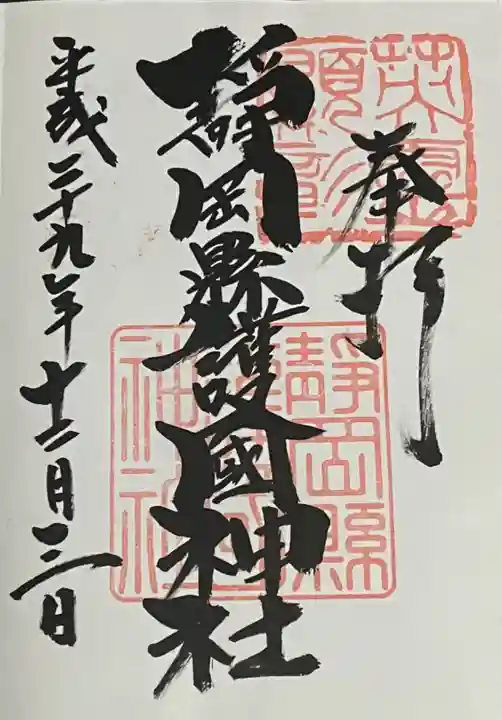 奉拝
靜岡縣護國神社
平成二十九年十二月三日
靜岡縣
神社